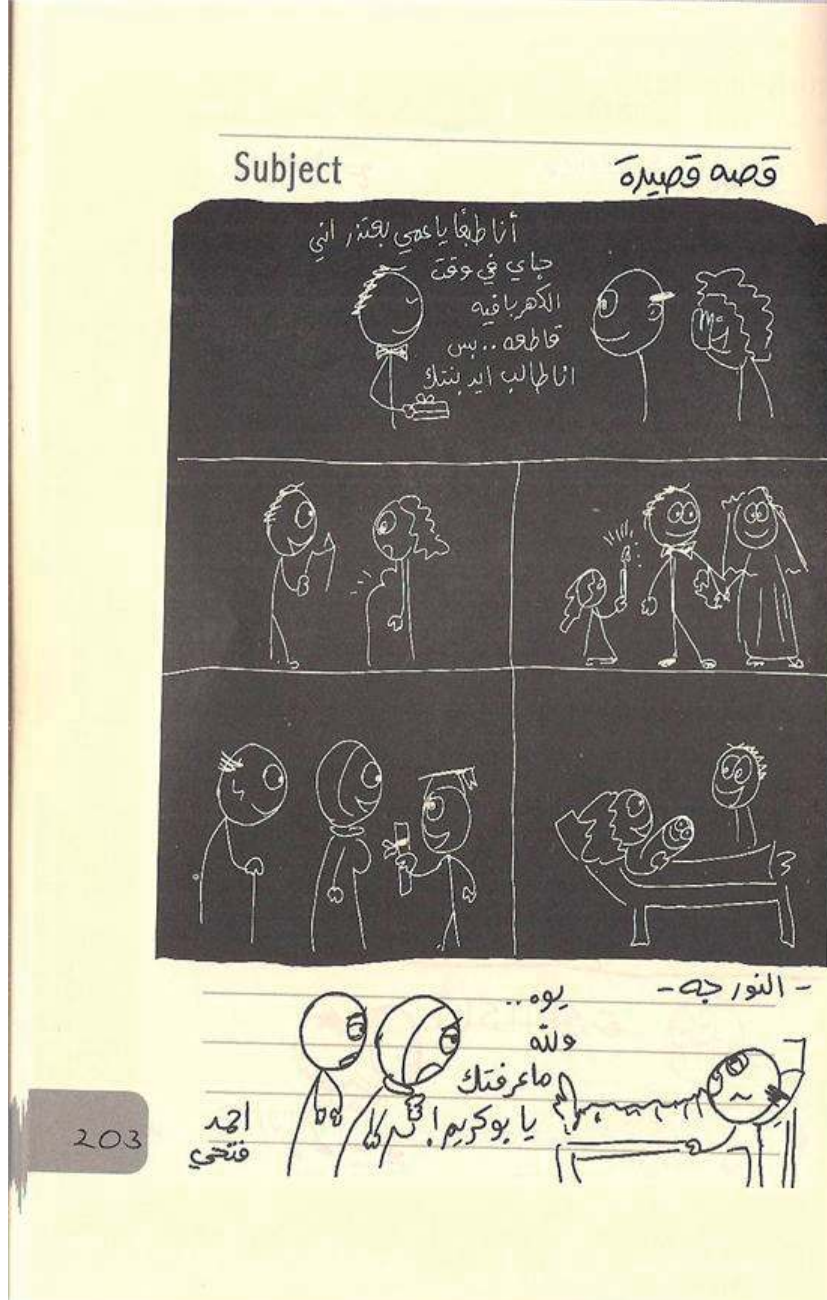 Subject
قصه قصيرة
أنا طبعًا يا عمي بعتذر اني
جاي في وقت
الكهربا فيه
قاطعه .. بس
انا طالب ايد بنتك
- النور جه -
يوه ..
ولله
ما عرفتك
يا بو كريم !
احمد
فتحي
203